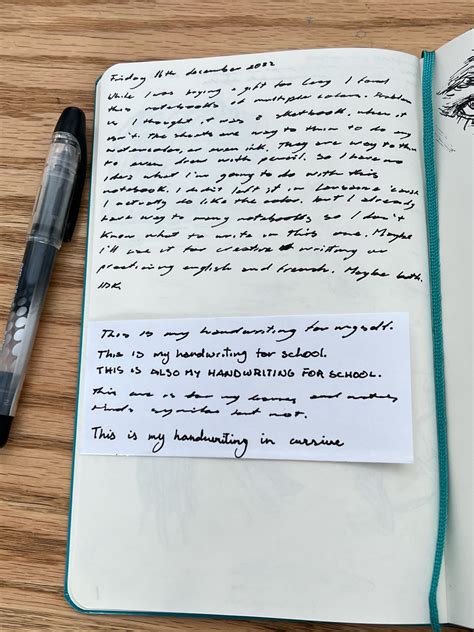 Friday 16th december 2022
While I was buying a gift for Lucy I found
this notebooks of multiple colors. Problem
is I thought it was a sketchbook, when it
isn't. The sheets are way to thin to do my
watercolor, or even ink. They are way to thin
to even draw with pencil. So I have no
idea what I'm going to do with this
notebook. I didn't left it in Lausanne 'cause
I actually do like the color. but I already
have way to many notebooks so I don't
know what to write in this one. Maybe
i'll use it for creative writting or
practicing english and french. Maybe both.
IDK.
This is my handwriting for myself.
This is my handwriting for school.
THIS IS ALSO MY HANDWRITING FOR SCHOOL.
This one is for my and
kinda but not.
This is my handwriting in cursive